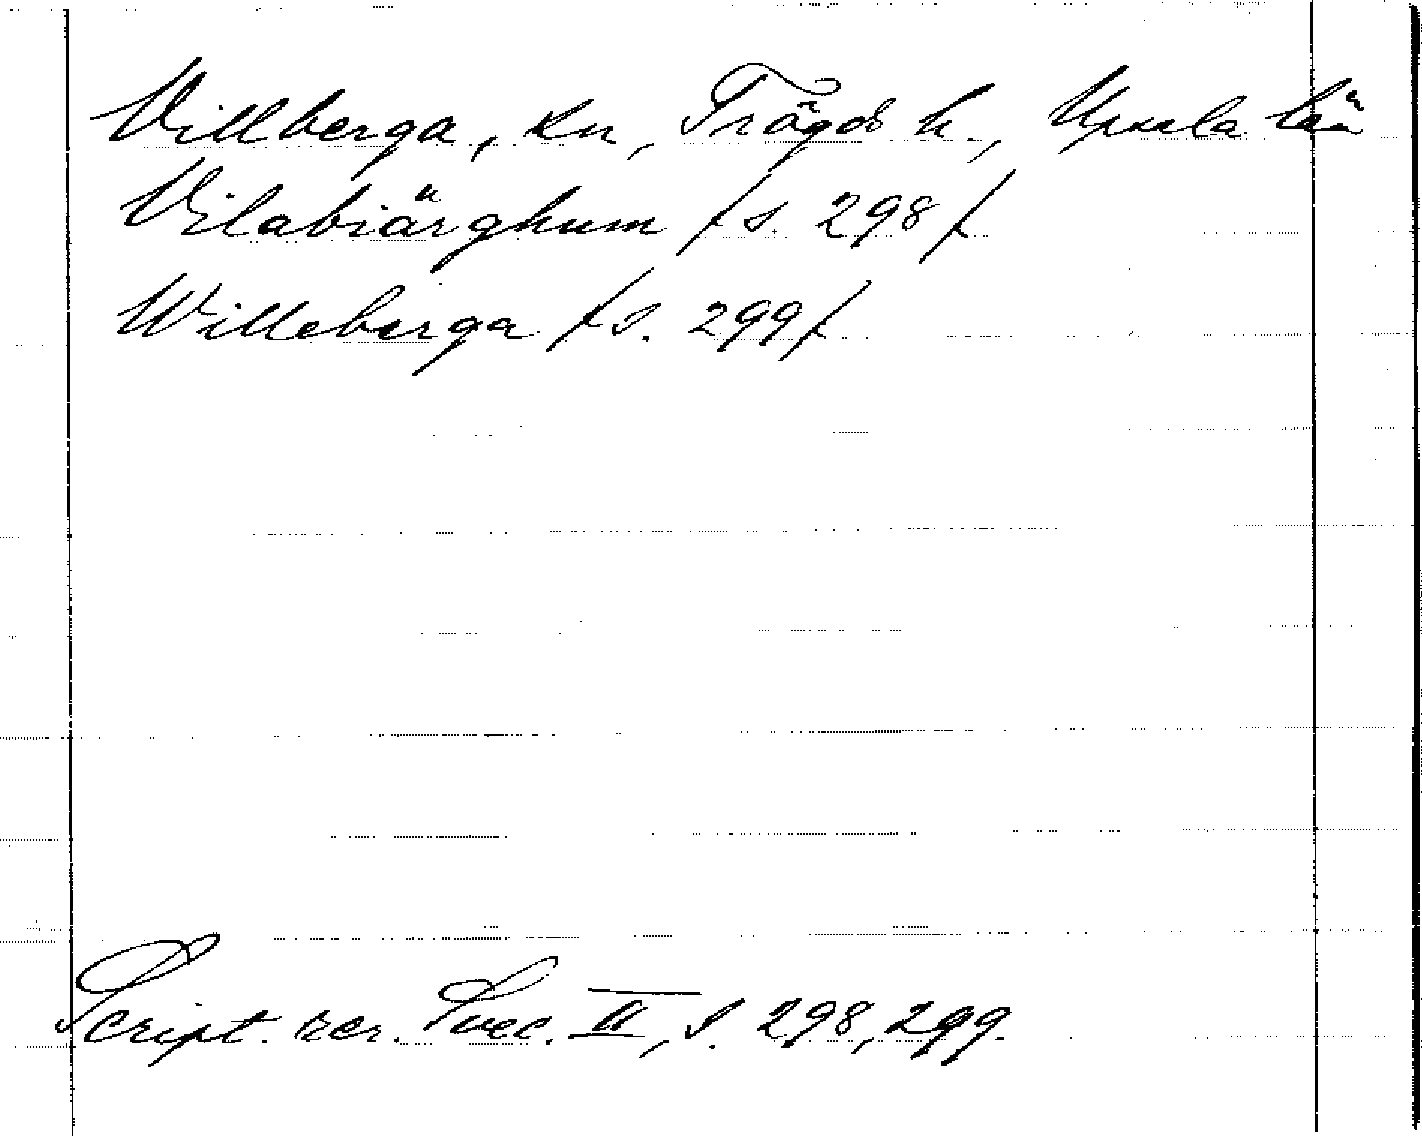 Villberga, sn, Trögds h., Upsala län
Vilabiärghum /s. 298/
Willeberga /s. 299/
Script. rer. Svec. II, s. 298, 299.